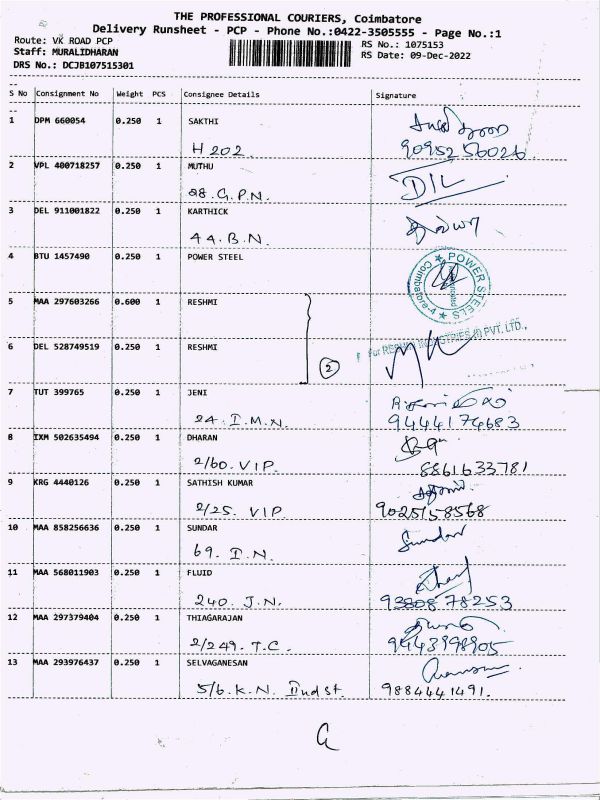 THE PROFESSIONAL COURIERS, Coimbatore
Delivery Runsheet - PCP - Phone No.:0422-3505555 - Page No.:1
Route: VK ROAD PCP
RS No.: 1075153
Staff: MURALIDHARAN
RS Date: 09-Dec-2022
DRS No.: DCJB107515301
S No Consignment No Weight PCS Consignee Details Signature
1 DPM 660054 0.250 1 SAKTHI
H 202. 9095256026
2 VPL 400718257 0.250 1 MUTHU
28. G.P.N. D/L
3 DEL 911001822 0.250 1 KARTHICK
44. B.N.
4 BTU 1457490 0.250 1 POWER STEEL
POWER STEELS
Coimbatore-4
5 MAA 297603266 0.600 1 RESHMI
6 DEL 528749519 0.250 1 RESHMI
2
PVT. LTD.,
7 TUT 399765 0.250 1 JENI
24. I.M.N. 9444174683
8 IXM 502635494 0.250 1 DHARAN
2/60. VIP. 8861633781
9 KRG 4440126 0.250 1 SATHISH KUMAR
2/25. VIP 9025158568
10 MAA 858256636 0.250 1 SUNDAR
69. I.N. Sundar
11 MAA 568011903 0.250 1 FLUID
240. J.N. 9380878253
12 MAA 297379404 0.250 1 THIAGARAJAN
2/249. T.C. 9443998905
13 MAA 293976437 0.250 1 SELVAGANESAN
5/6. K.N. IInd st. 9884441491.